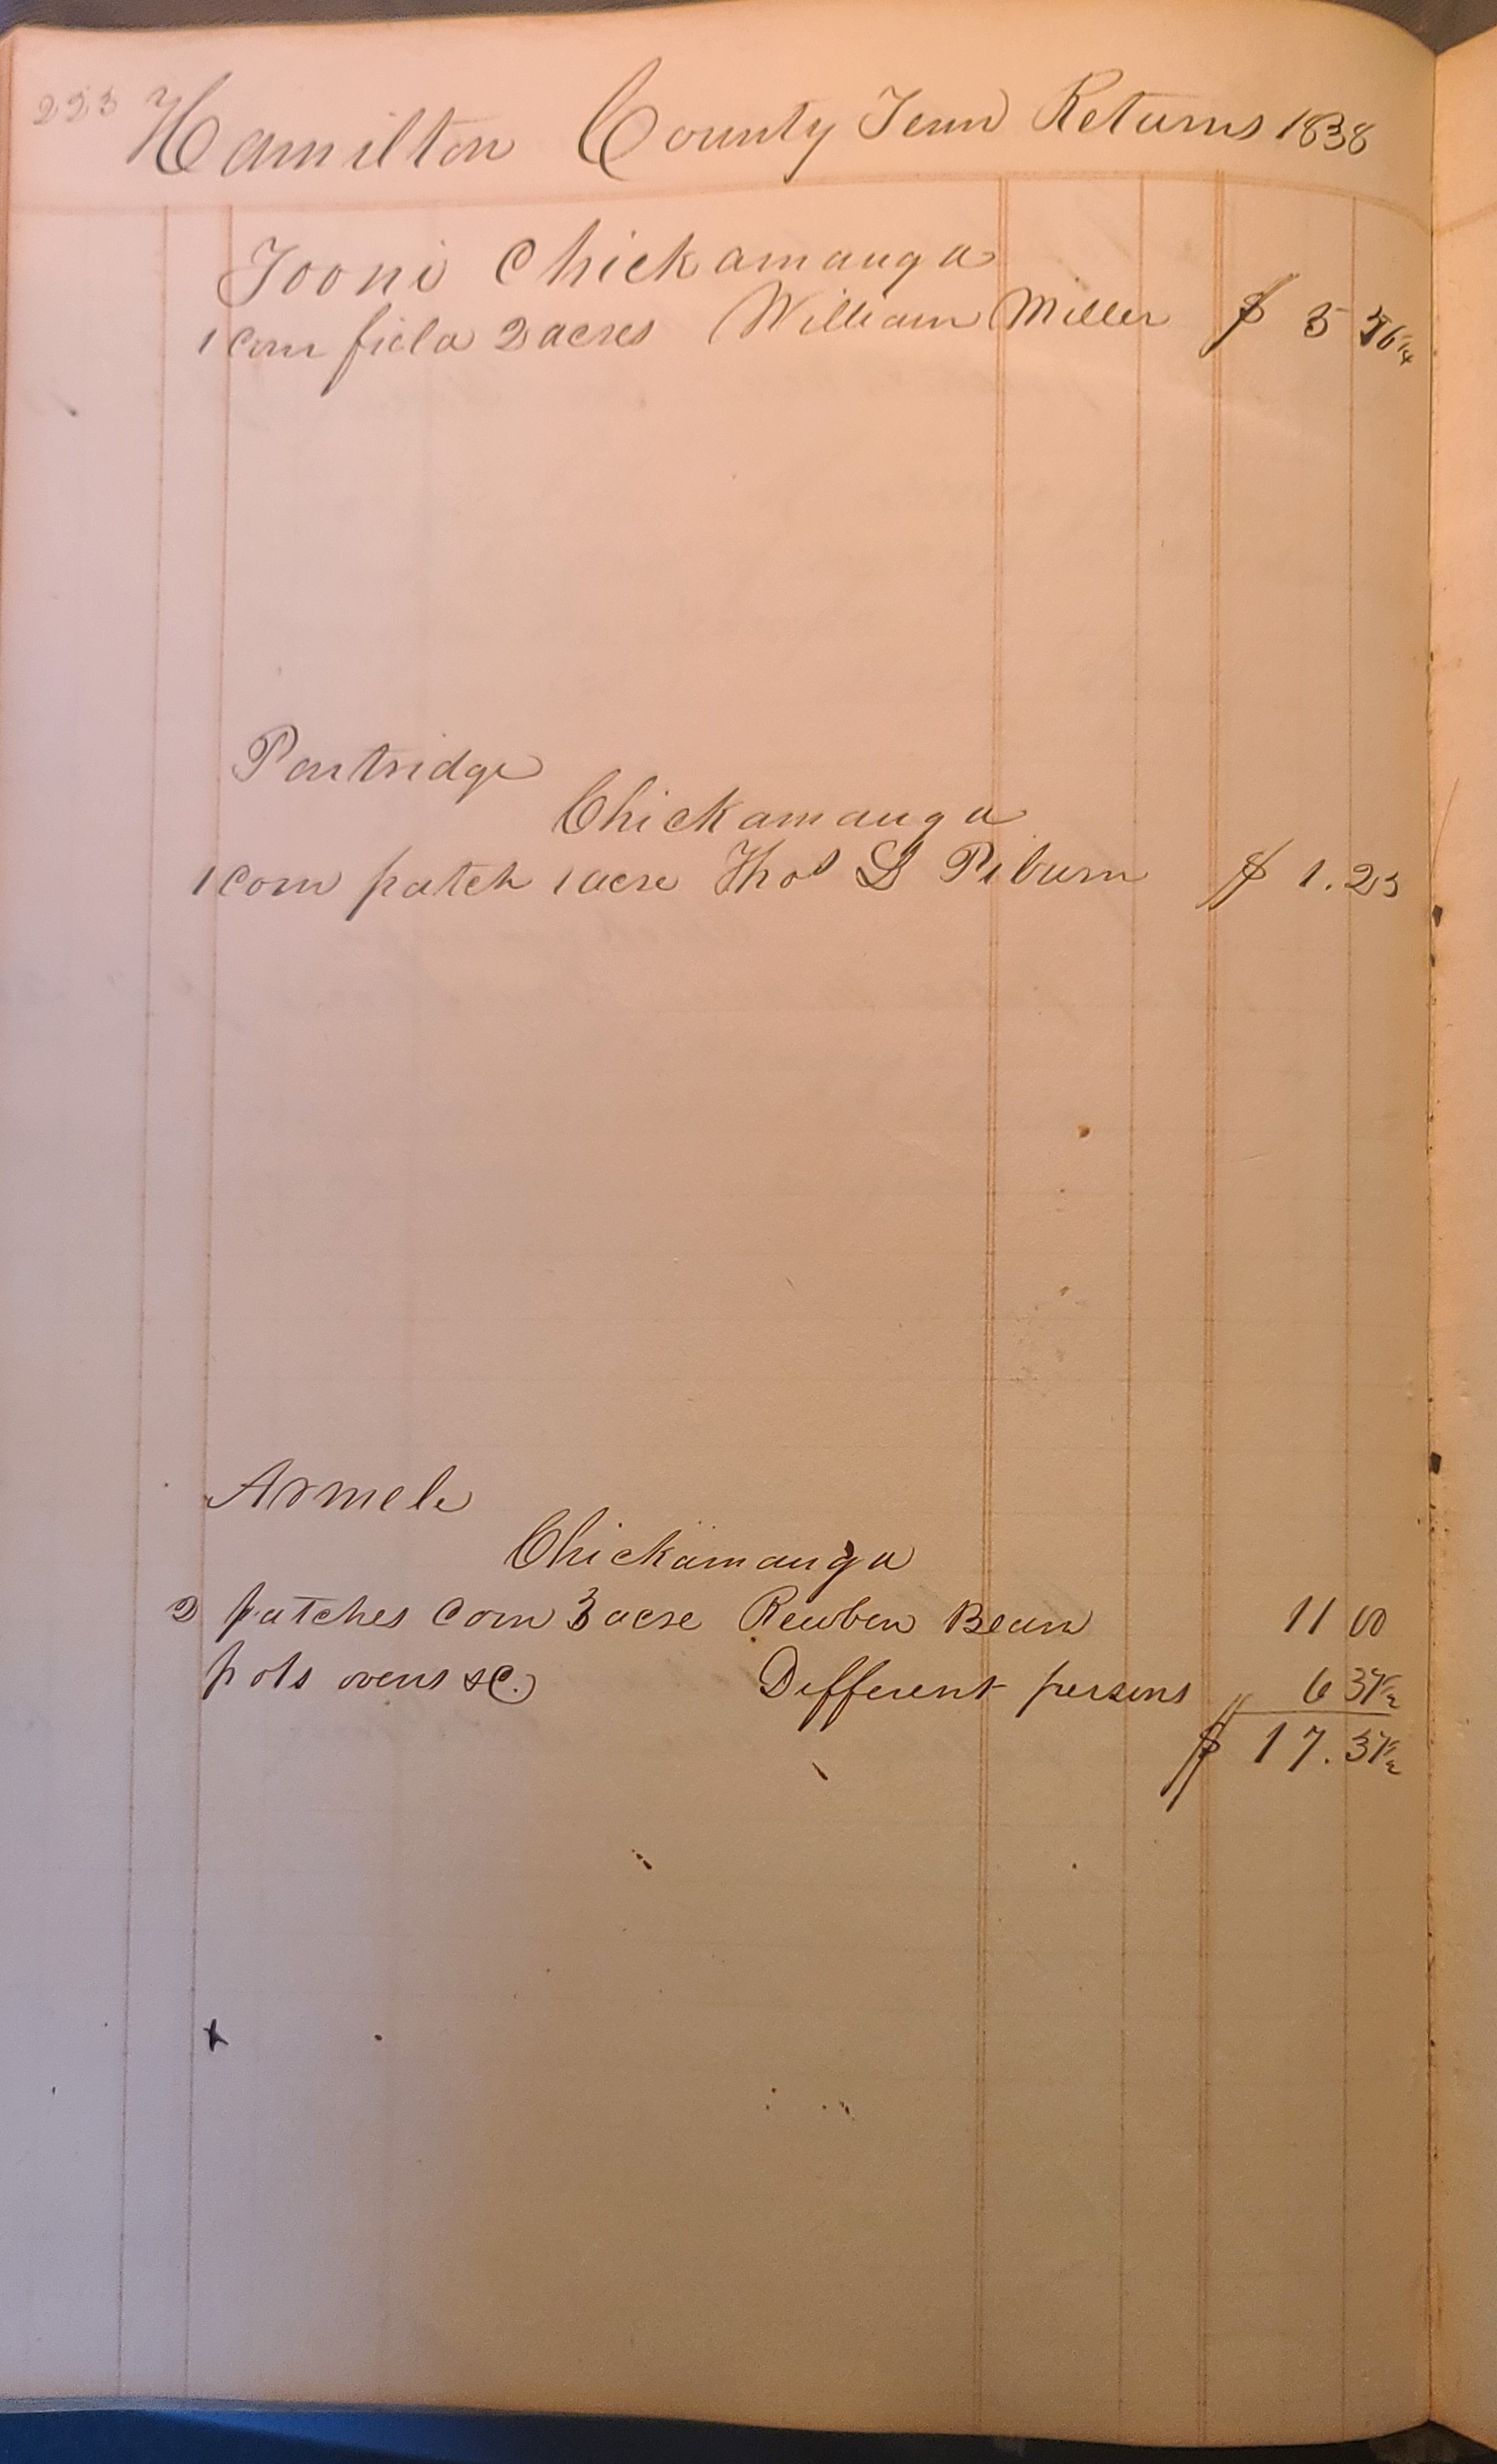 223 Hamilton County Tenn Returns 1838
Tooni Chickamauga
1 Corn field 2 acres William Miller $ 5
Partridge
Chickamauga
1 Corn patch 1 acre Thos L Piburn $ 1.25
Chickamauga
2 patches Corn 3 acre Reuben Bean 11 00
pots ovens &C. Different persons 6 37½
$ 17.37½